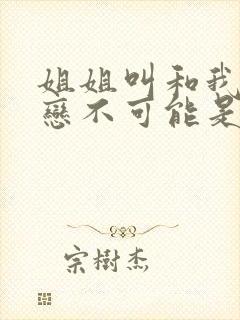 姐姐叫和我
戀不可能是
宗樹杰